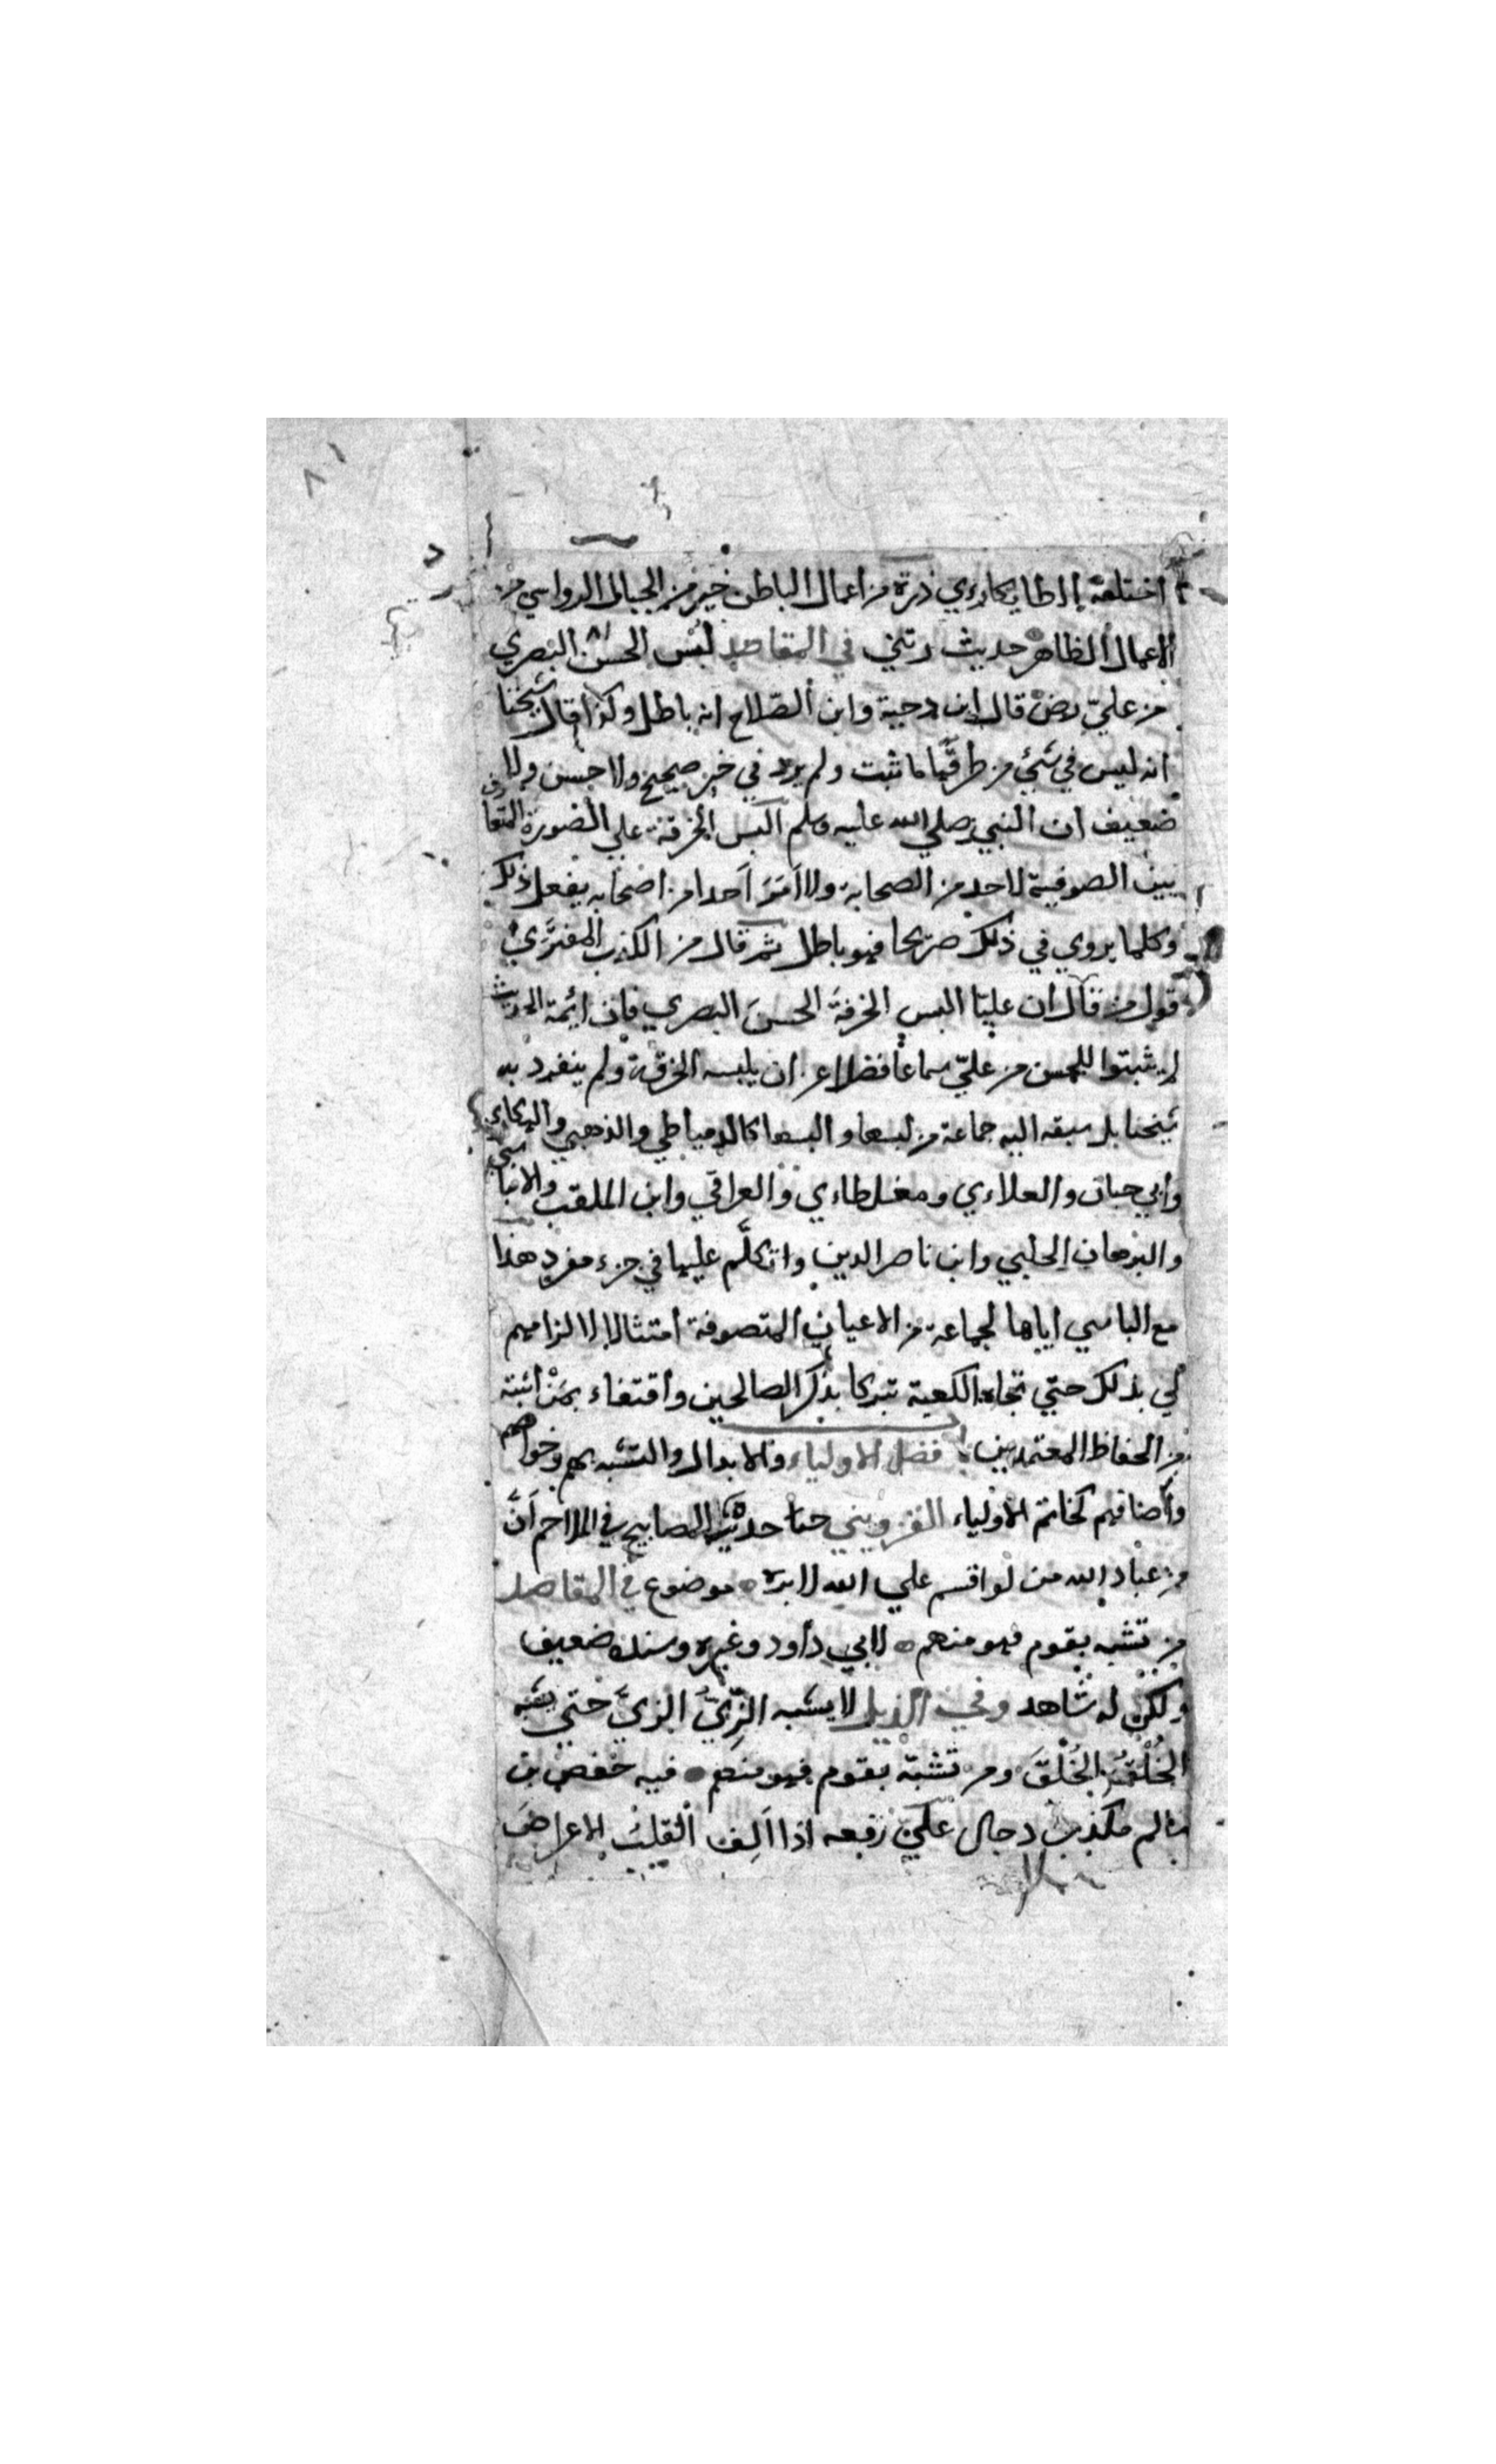 اختلعه الطايكاوي ذرة من اعمال الباطن خير من الجبال الرواسي من
الاعمال الظاهر حديث رتني في المقاصد لبس الحسن البصري
من علي رض قال ابن دحية وابن الصلاح انه باطل وكذا قال شيخنا
انه ليس في شئ من طرقها ما ثبت ولم يرد في خبر صحيح ولا حسن ولا
ضعيف ان النبي صلي الله عليه وسلم البس الخرقة علي الصورة المتعارف
بين الصوفية لاحد من الصحابة ولا امر احدا من اصحابه بفعل ذلك
وكلما يروي في ذلك صريحا فهو باطل ثم قال من الكذب المفتري
قول من قال ان عليّا البس الخرقة الحسن البصري فان ائمة الحديث
لم يثبتوا للحسن من عليّ سماعا فضلا عن ان يلبسه الخرقة ولم ينفرد به
شيخنا بل سبقه اليه جماعة من لبسها والبسها كالدمياطي والذهبي والهكاري
وابي حيان والعلاءي ومغلطاءي والعراقي وابن الملقن والابناسي
والبرهان الحلبي وابن ناصر الدين واتكلّم عليها في جزء مفرد هذا
مع الباسي اياها لجماعة من الاعيان المتصوفة امتثالا لالزامهم
لي بذلك حتي تجاه الكعبة تبركا بذكر الصالحين واقتفاء بمن اثبته
من الحفاظ المعتمدين فضل الاولياء والابدال والتشبه بهم وخواصهم
واصنافهم كخاتم الاولياء القزويني حديث المصابيح في الملاحم انّ
من عباد الله من لو اقسم علي الله لابره موضوع في المقاصد
من تشبه بقوم فهو منهم لابي داود وغيره وسنده ضعيف
ولكن له شاهد وفي الذيل لا يشبه الزِّيُّ الزيَّ حتي يشبه
الخُلُقُ الخُلُقَ ومن تشبه بقوم فهو منهم فيه حفص بن
سالم مكذب دجال علي رفعه اذا الِف القلبُ الاعراضَ